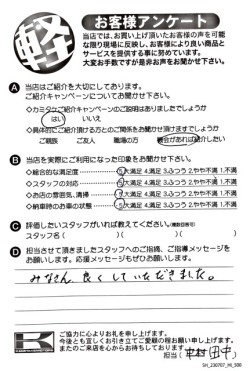 軽
お客様アンケート
当店では、お買い上げ頂いたお客様の声を可能
な限り現場に反映し、お客様により良い商品と
サービスを提供する事に努めています。
大変お手数ですが是非お声をお聞かせ下さい。
A 当店はご紹介を大切にしてあります。
ご紹介キャンペーンについてお聞かせ下さい。
◇カミタケご紹介キャンペーンのご説明はありましたでしょうか
はい いいえ
◇具体的にご紹介頂ける方とのご関係をお聞かせ頂けますでしょうか
ご親族 ご友人 職場の方 機会があれば紹介したい
B 当店を実際にご利用になった印象をお聞かせ下さい。
◇総合的な満足度 5.大満足 4.満足 3.ふつう 2.やや不満 1.不満
◇スタッフの対応 5.大満足 4.満足 3.ふつう 2.やや不満 1.不満
◇お店の雰囲気、清掃 5.大満足 4.満足 3.ふつう 2.やや不満 1.不満
◇納車時のお車の状態 5.大満足 4.満足 3.ふつう 2.やや不満 1.不満
C 評価したいスタッフがいれば教えてください。(複数回答可)
スタッフ名( )( )( )
D 担当させて頂きましたスタッフへのご指摘、ご指導メッセージを
お願いします。応援メッセージもお待ちしております。
みなさん、良くしていただきました。
ご協力に心よりお礼を申し上げます。
今後とも宜しくお引き立てご愛顧の程お願い申し上げます。
またのご来店を心からお待ちしております。
担当( 中村 田中 )
SH_230707_MI_000